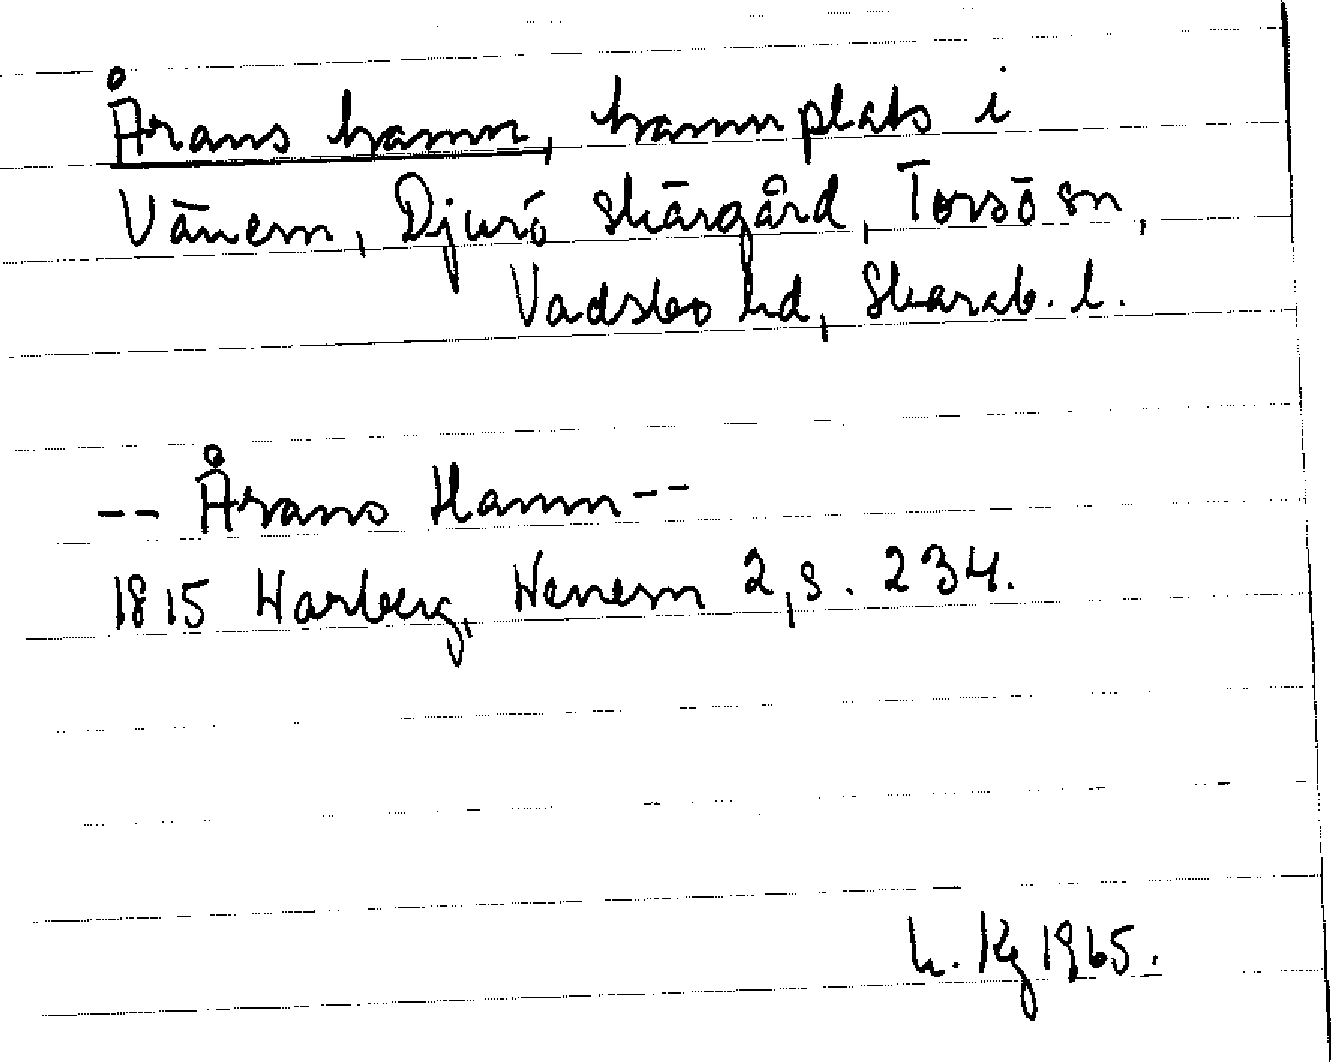 Årans hamn, hamnplats i
Vänern, Djurö skärgård, Torsö sn,
Vadsbo hd, Skarab. l.
-- Årans Hamn --
1815 Warberg, Wenern 2, s. 234.
h. Kg 1965.